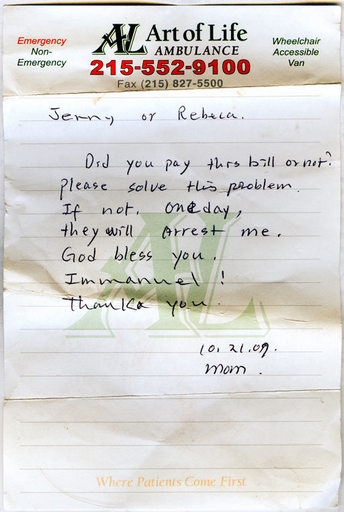 Emergency
Non-
Emergency
AL Art of Life
AMBULANCE
215-552-9100
Fax (215) 827-5500
Wheelchair
Accessible
Van
Jenny or Rebeca.
Did you pay this bill or not?
Please solve this problem.
If not. One day,
they will Arrest me.
God bless you.
Immanuel !
Thanka you.
10. 21. 09.
Mom.
AL
Where Patients Come First